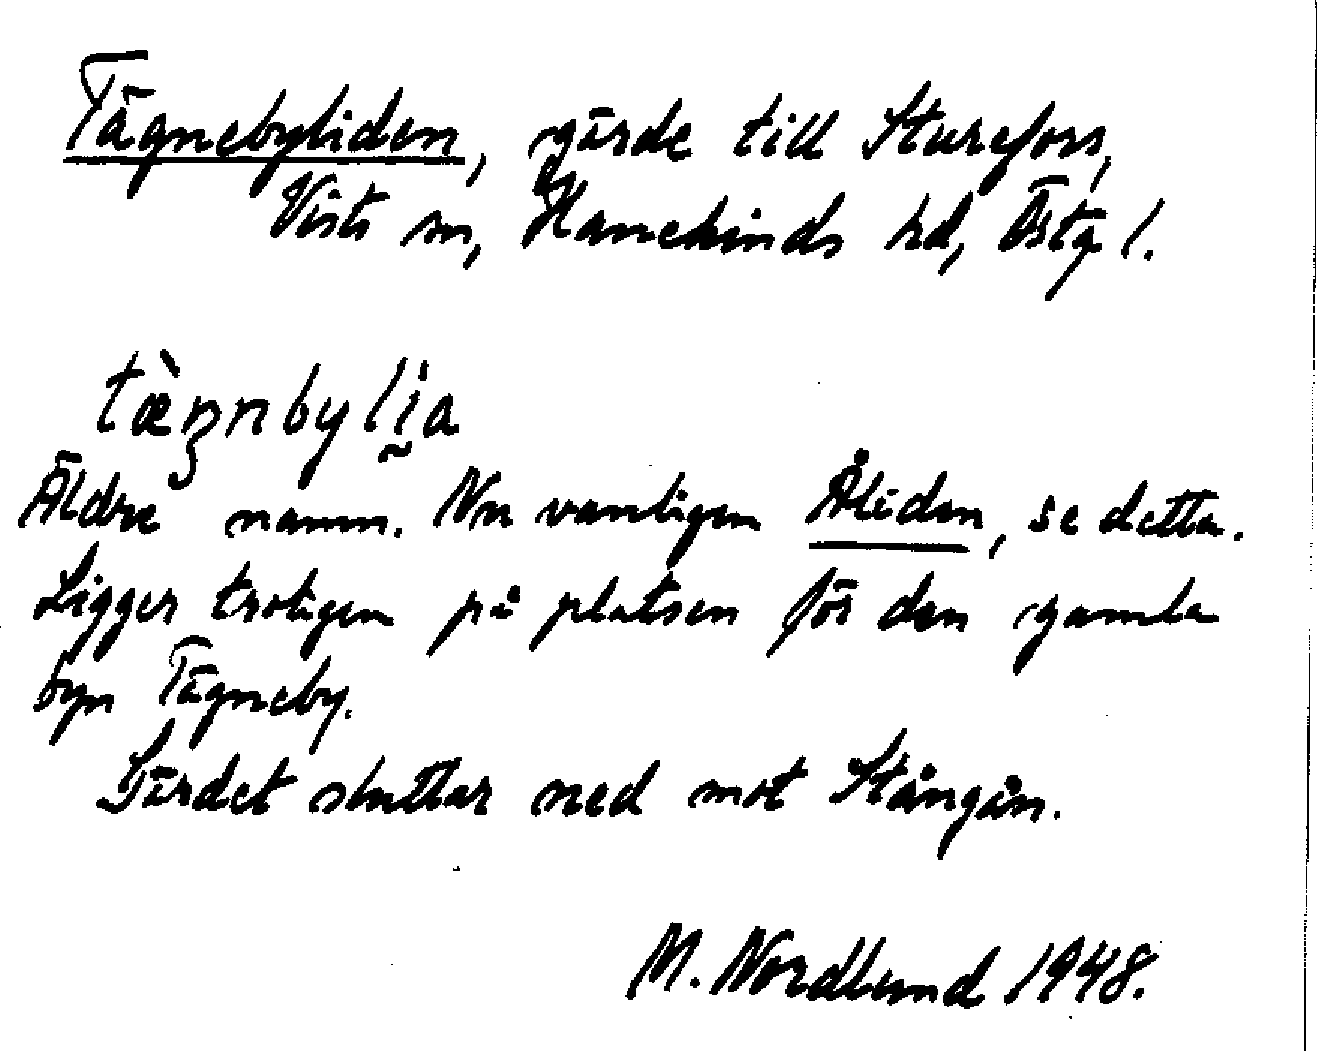 Tägnebyliden, gärde till Sturefors,
Vists sn, Hanekinds hd, Östg l.
tæ̀ŋnbylḭa
Äldre namn. Nu vanligen Åliden, se detta.
Ligger troligen på platsen för den gamla
byn Tägneby.
Gärdet sluttar ned mot Stångån.
M. Nordlund 1948.